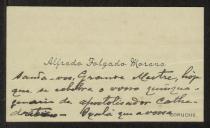 Alfredo Folgado Moreno
Sauda-vos, Grande Mestre, hoje
que se celebra o vosso quinqua-
genario de apostolisador Cathe-
dratico. Oxalá que a vossa
CORUCHE.